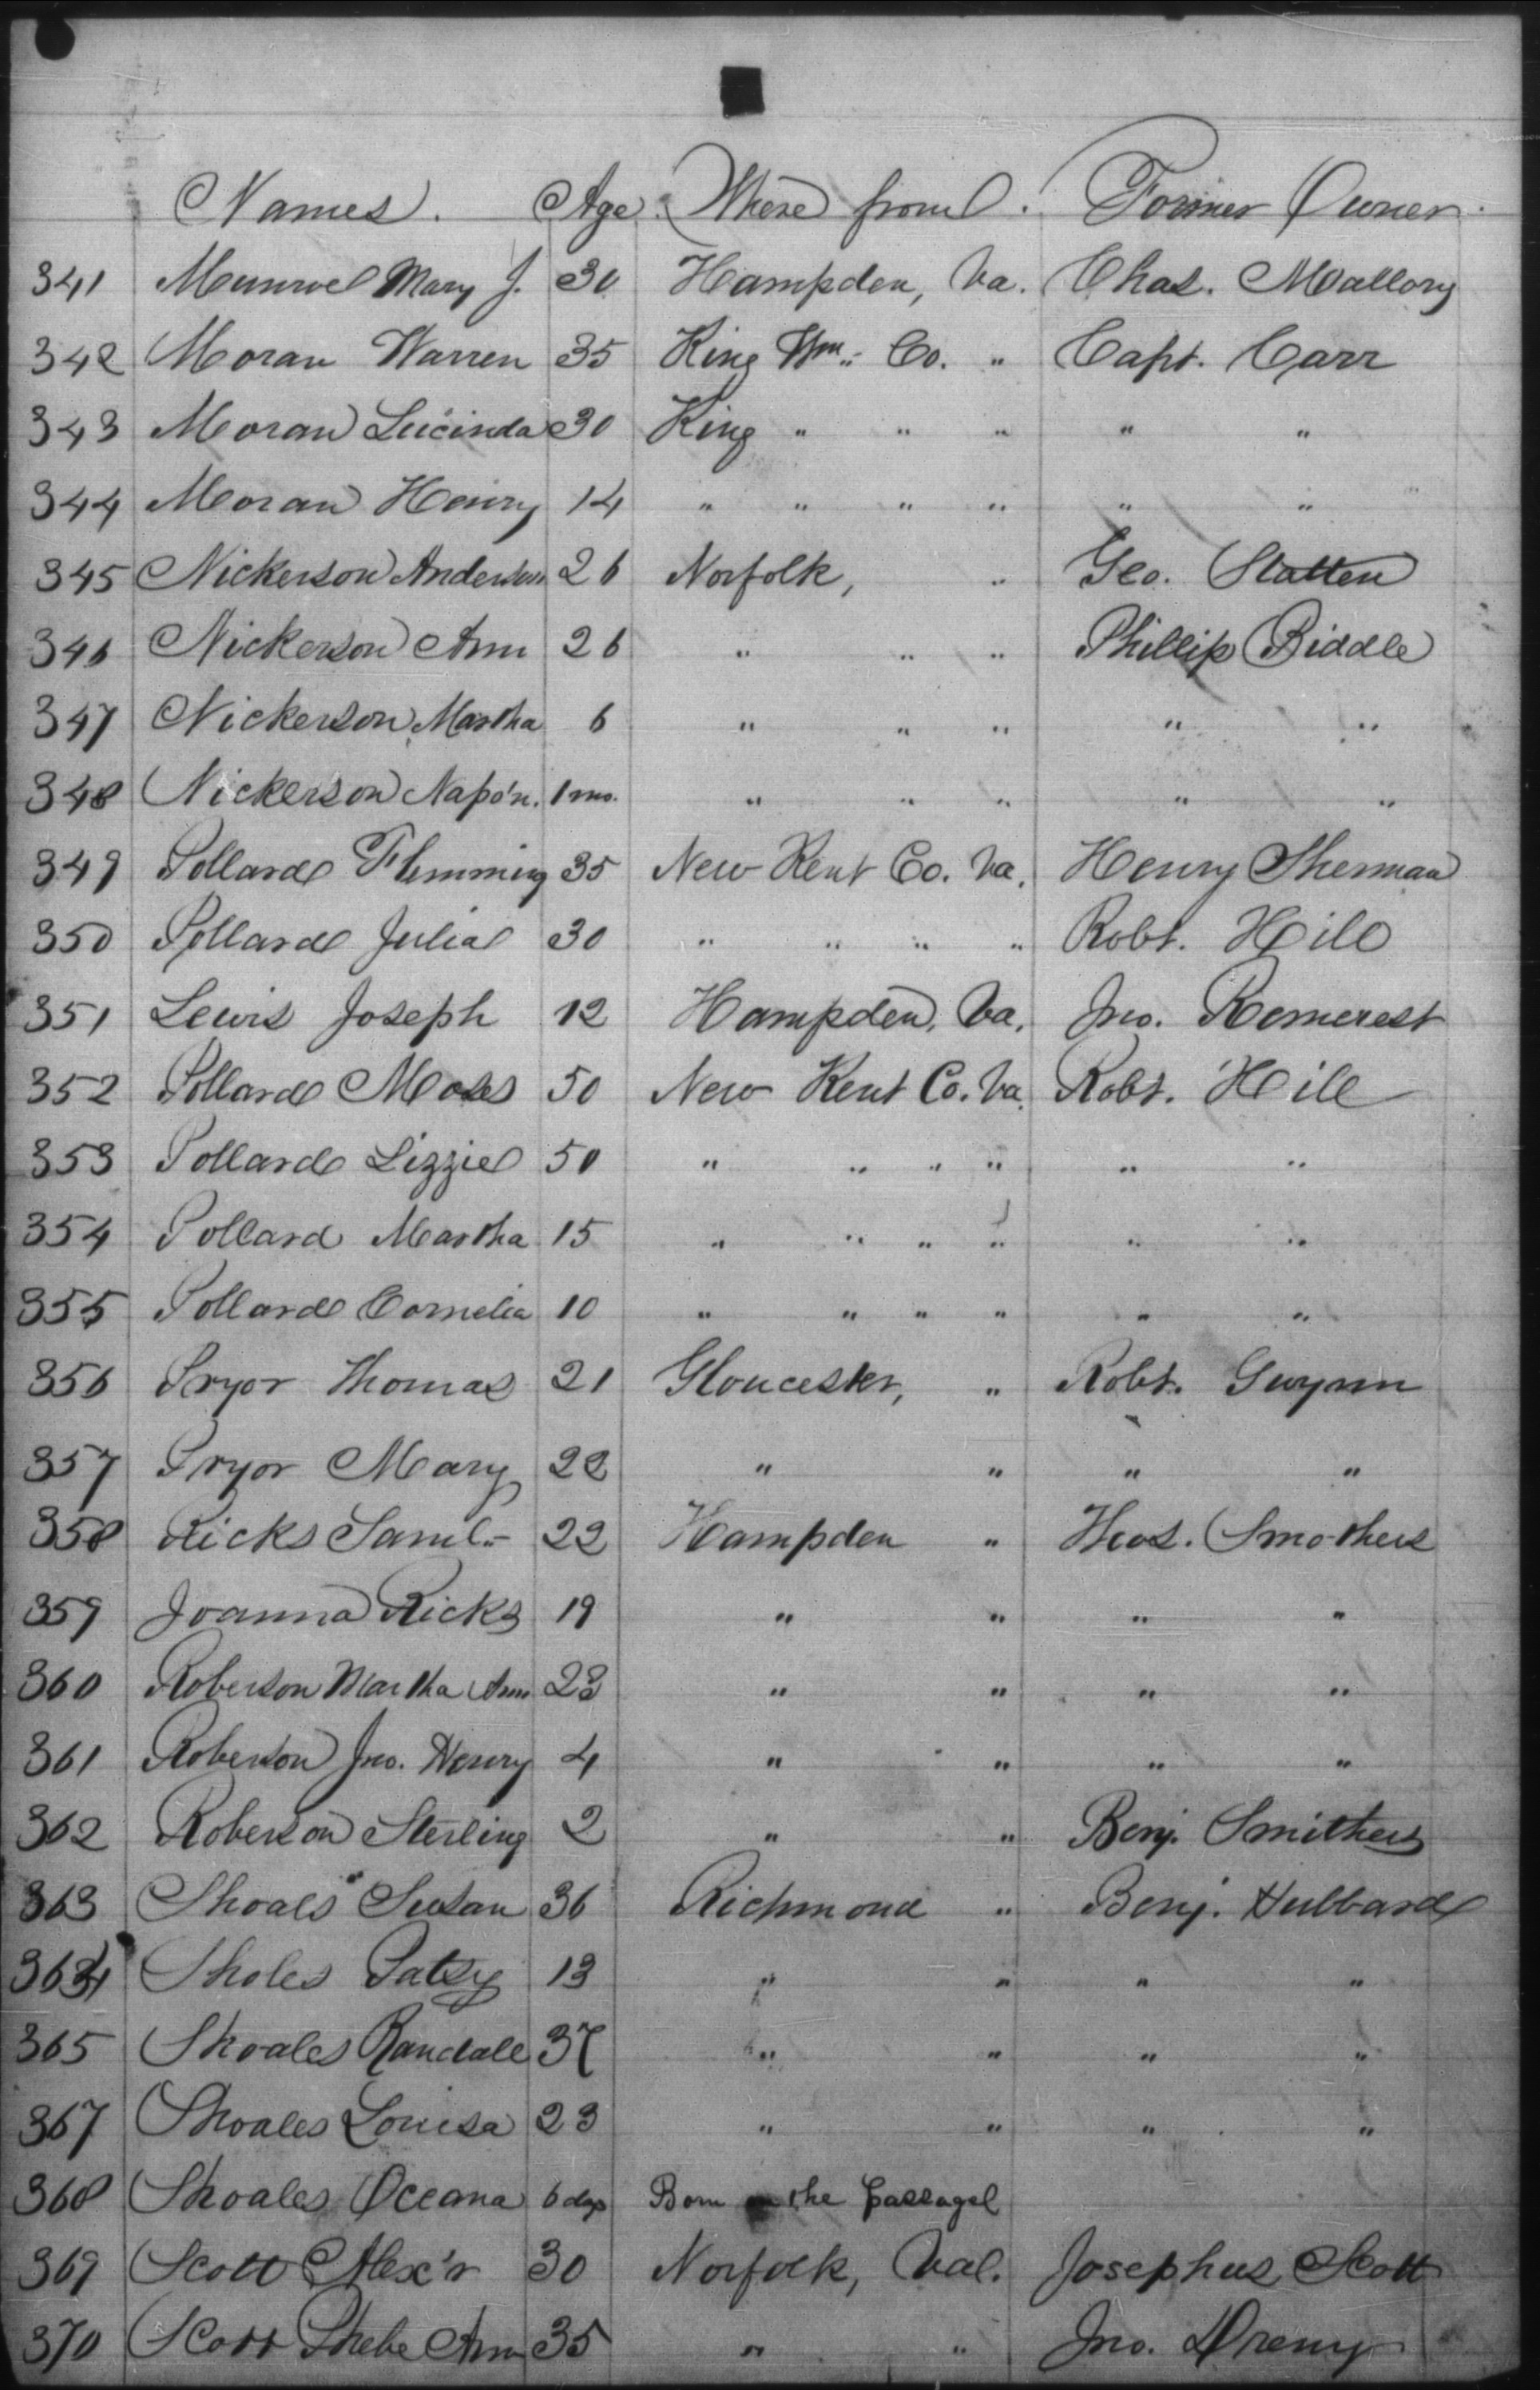 Names. Age. Where from. Former Owner.
341 Munroe Mary J. 30 Hampden, Va. Chas. Mallory
342 Moran Warren 35 King Wm. Co. " Capt. Carr
343 Moran Lucinda 30 King " " " " "
344 Moran Henry 14 " " " " " "
345 Nickerson Anderson 26 Norfolk, " Geo. Statten
346 Nickerson Ann 26 " " " Phillip Biddle
347 Nickerson Martha 6 " " " " "
348 Nickerson Napo'n. 1 mo. " " " " "
349 Pollard Flemming 35 New Kent Co. Va. Henry Sherman
350 Pollard Julia 30 " " " " Robt. Hill
351 Lewis Joseph 12 Hampden, Va. Jno. Romerest
352 Pollard Moses 50 New Kent Co. Va. Robt. Hill
353 Pollard Lizzie 50 " " " " " "
354 Pollard Martha 15 " " " " " "
355 Pollard Cornelia 10 " " " " " "
356 Pryor Thomas 21 Gloucester, " Robt. Gwynn
357 Pryor Mary 22 " " " "
358 Ricks Saml. 22 Hampden " Thos. Smothers
359 Joanna Ricks 19 " " " "
360 Roberson Martha Ann 23 " " " "
361 Roberson Jno. Henry 4 " " " "
362 Roberson Sterling 2 " " Benj. Smithers
363 Shoals Susan 36 Richmond " Benj. Hubbard
364 Sholes Patsy 13 " " " "
365 Shoales Randall 37 " " " "
367 Shoales Louisa 23 " " " "
368 Shoales Oceana 6 dys Born on the passage
369 Scott Alex'r 30 Norfolk, Va. Josephus Scott
370 Scott Phebe Ann 35 " " Jno. Dreny